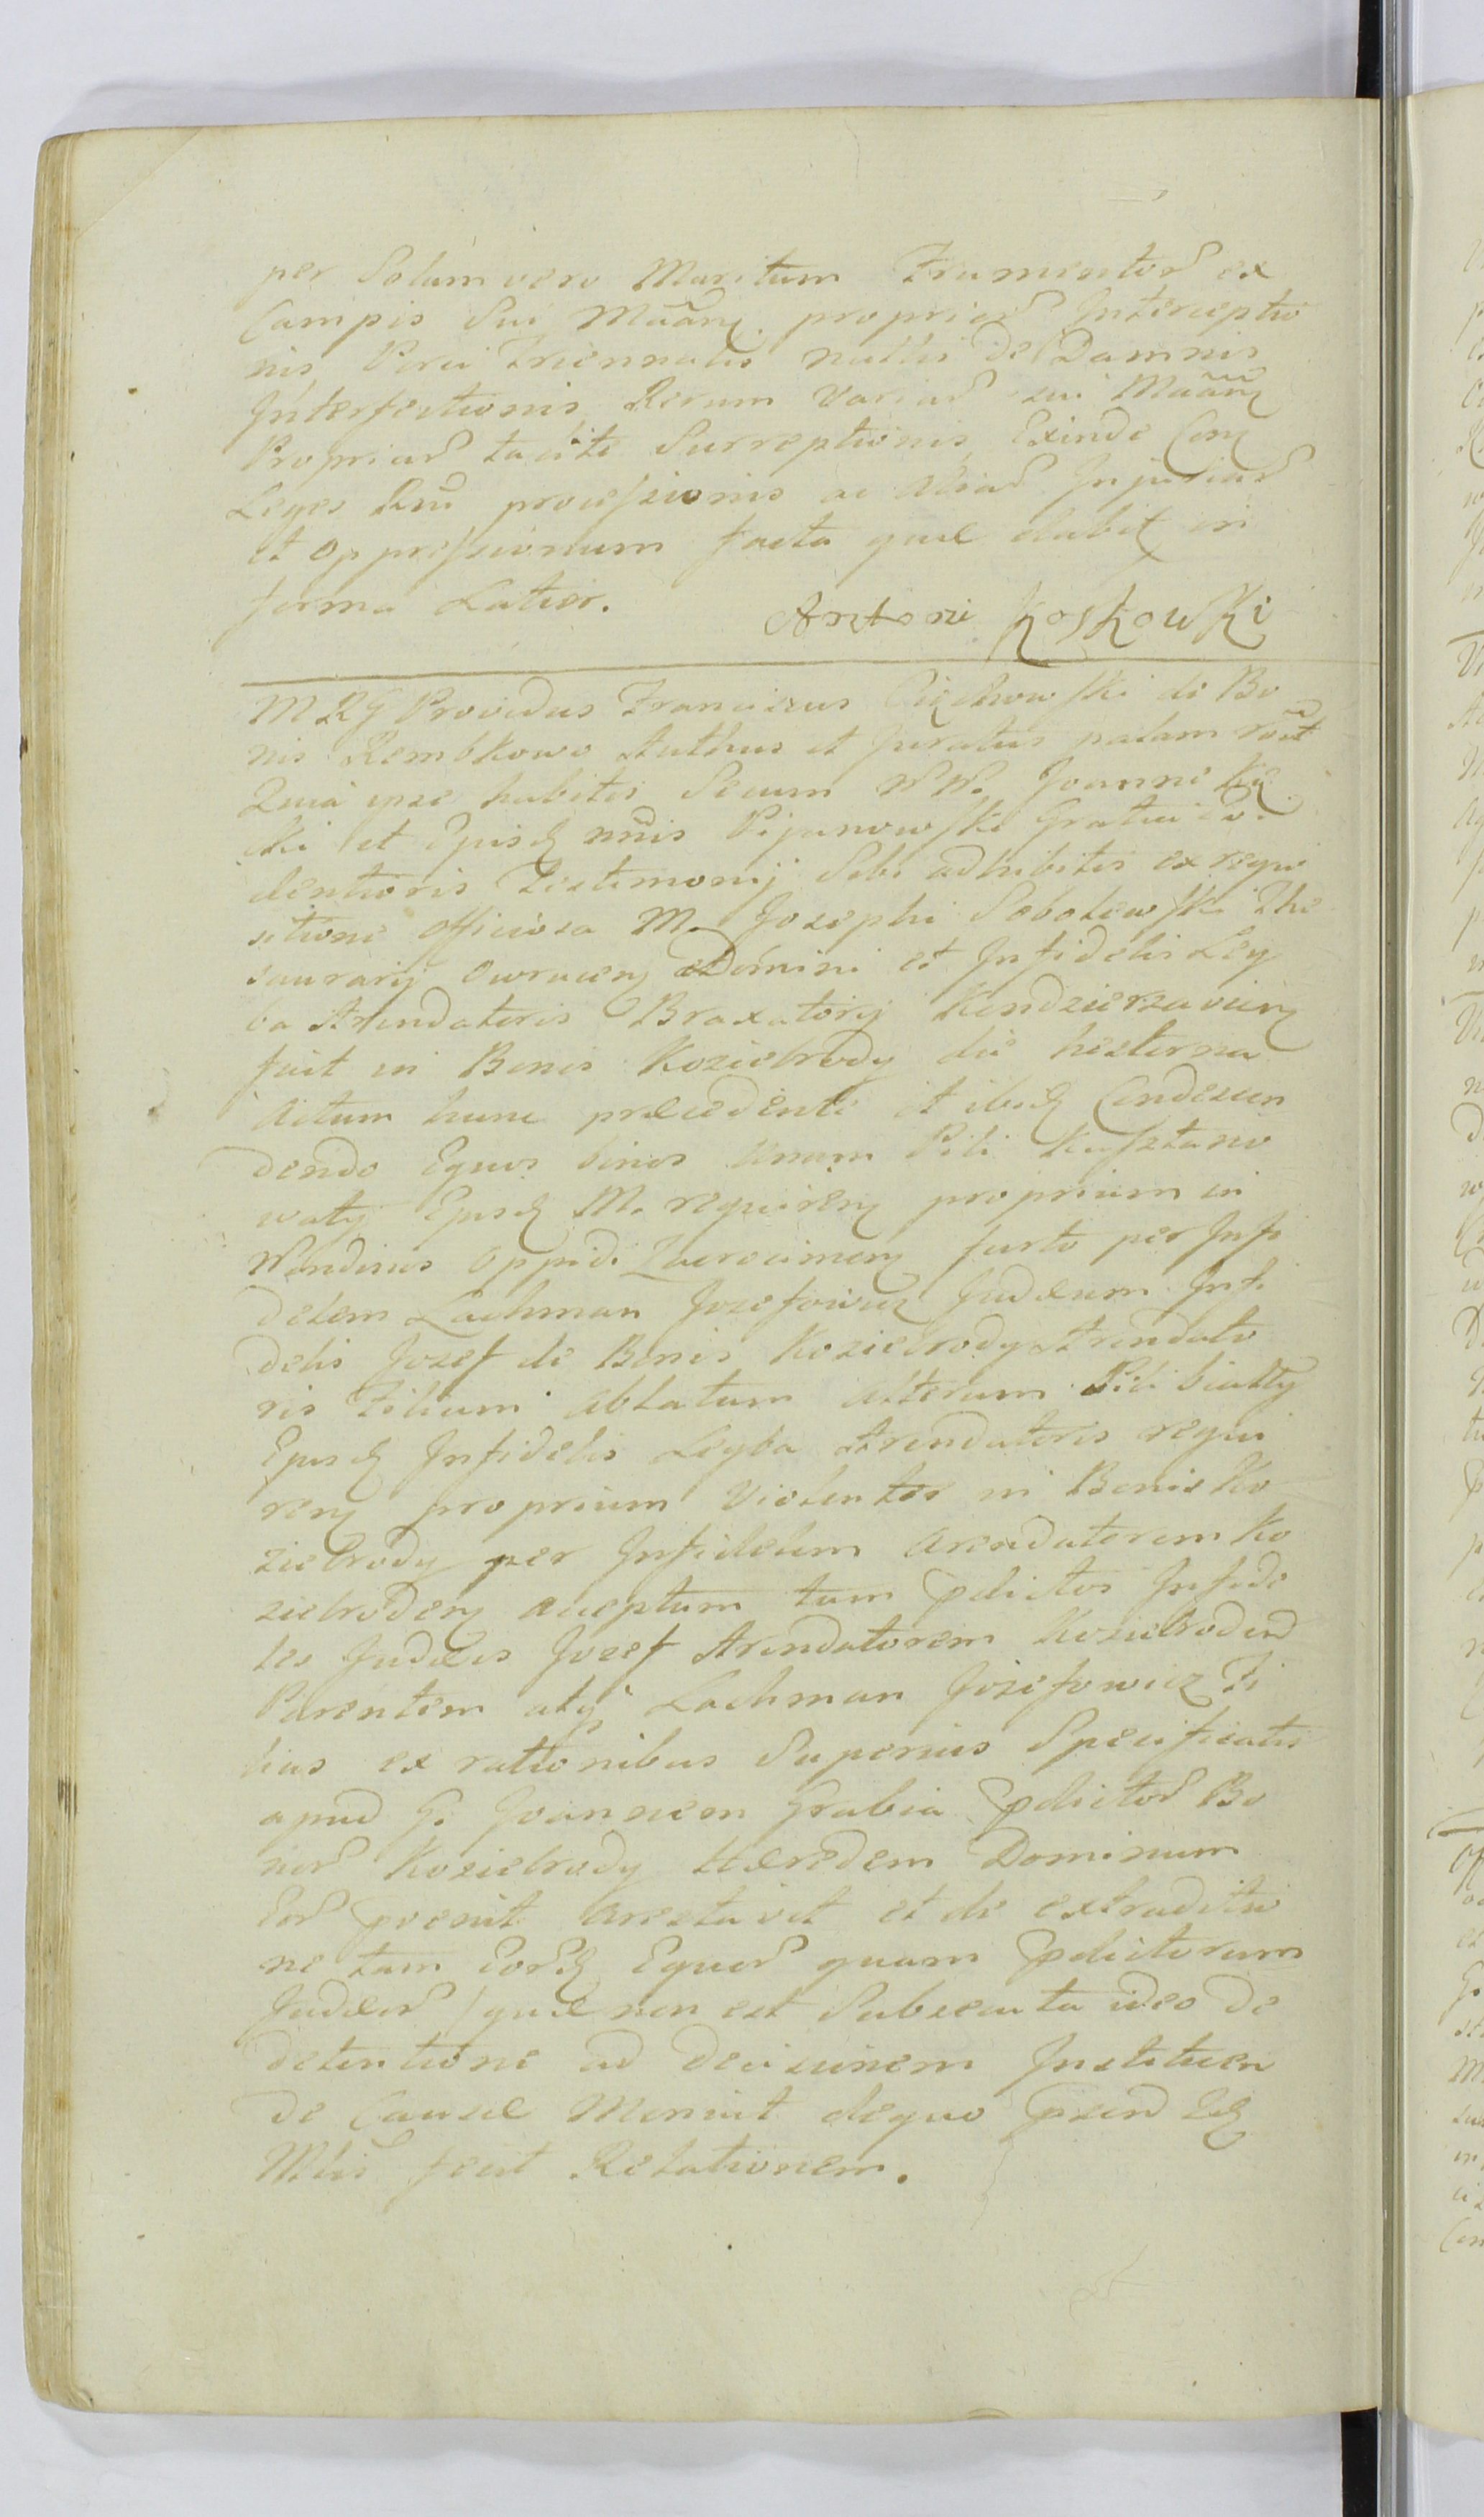 per Solum vero Maritum Frumentor ex
Campis Sui Maãnę. proprior Interceptio
nis Porci Triennalis nullis de Damnis
Interfectionis Rerum Variar sui Maãnę
Propriar tacite Surreptionis Exinde Conę
Leges Rni processionis ac aliar Injuriar
et oppressionum facta quæ dabit in
forma Latior.
Antoni Koskowski
M R G Providus Franciscus Ciechowski de Bo
nis Rembkowo Authus et Juratus palam
Quia ipse habitis Secum N N. Joanne Kę
cki et Ipiusq nnis Pijanowski Gratia Evi
dentioris Testimonij Sibi adhibitis ex requi
sitione officiosa M. Josephi Sobolewski The
saurarij Owruceną Domini et Infidelis Ley
ba Arendatoris Braxatorij Kendzierzavieną
fuit in Bonis Koziebrody die hesterna
Actum hunc præcedente et ibidę Condescen
dendo Equos binos Unum Pili Kasztano
waty Ejusdę M. requireną proprium in
Nundinis oppidi Zuromineną furto per Infi
delem Lachman Jozefowicz Judæum Infi
delis Jozef de Bonis Koziebrody Arendato
ris Filium ablatum alterum Pili bialty
Ejusdę Infidelis Leyba Arendatoris requi
reną proprium Violenter in Bonis Ko
ziebrody per Infidelem Arendatorem Ko
ziebrodeną acceptum tum pdictos Infide
les Judæos Jozef Arendatorem Koziebroden
Parentem atq Lachman Jozefowicz Fi
lius ex rationibus Superius Specificatis
apud G. Joannem Grabia pdictor Bo
nor Koziebrody Hæredem Dominum
Eor pvenit arestavit et de extraditio
ne tam Eordę Equor quam pdictorum
Judæor / quæ non est Subsecuta ideo de
detentione ad decisionem Instituen
dæ Causæ Monuit dequo psend
Mlis fecit Relationem.